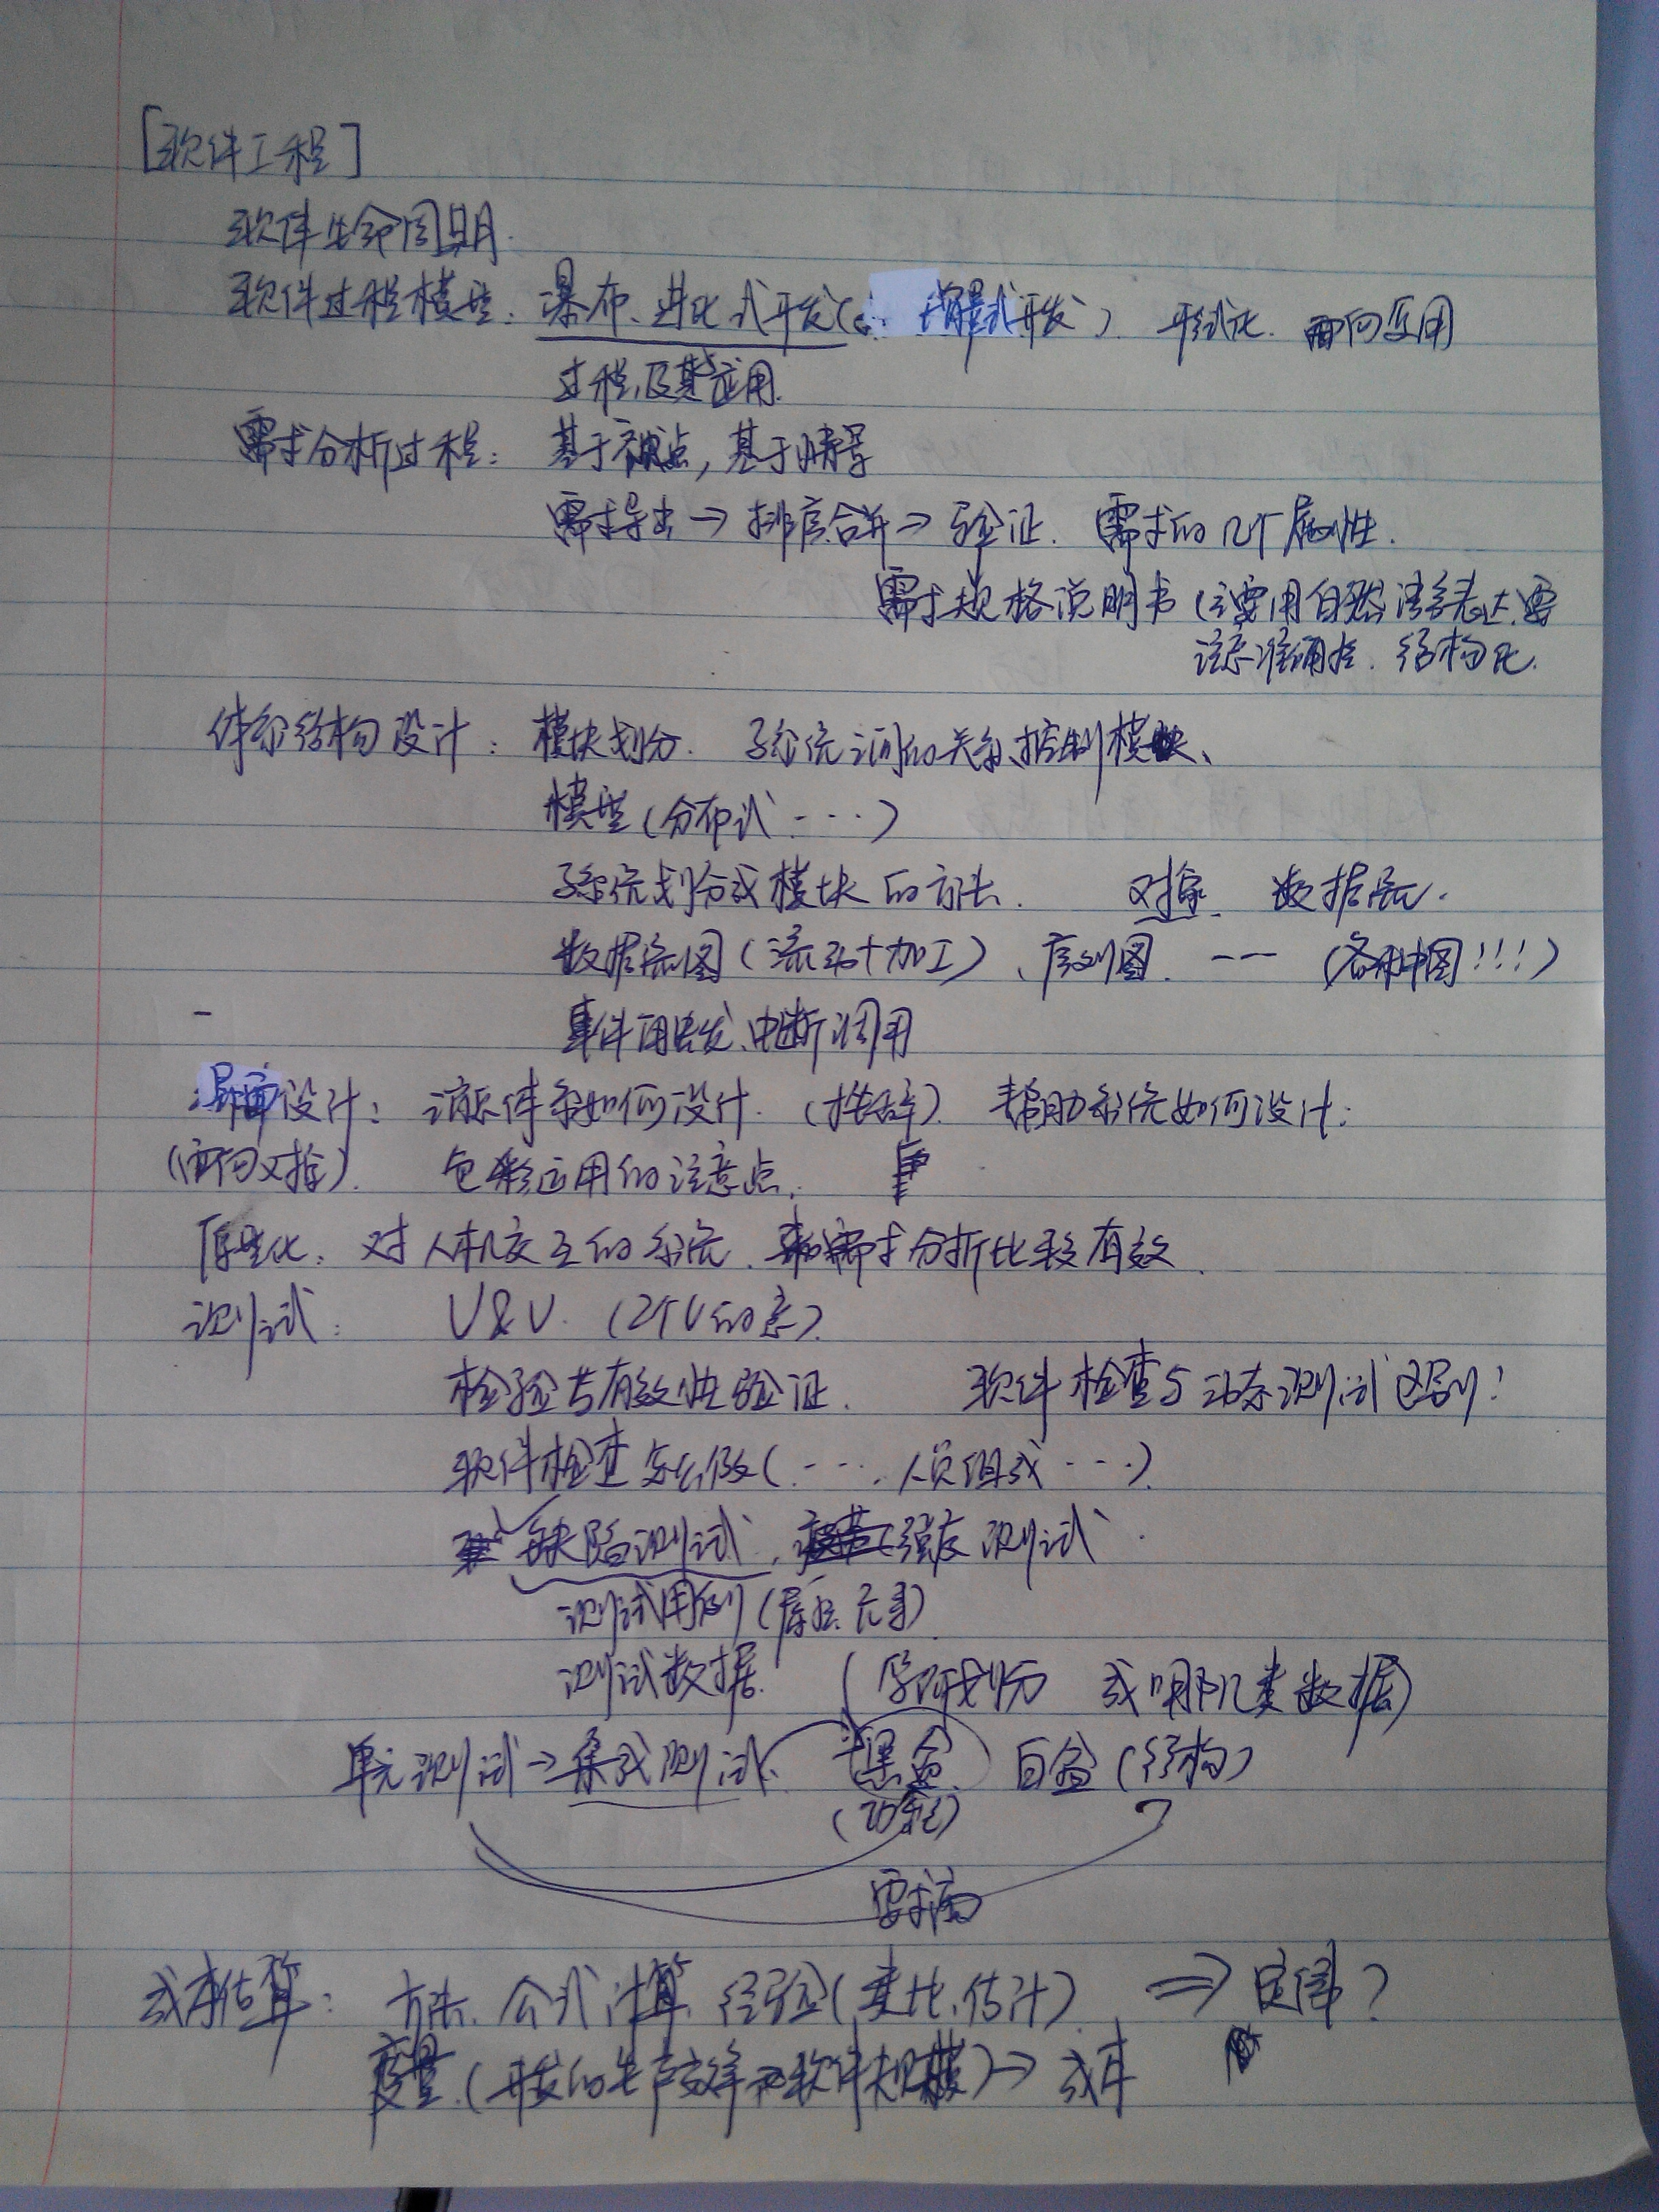 [软件工程]
软件生命周期.
软件过程模型: 瀑布、进化式开发( 式开发) 形式化. 面向复用
过程及其应用.
需求分析过程: 基于视点, 基于情景
需求导出→排序合并→验证. 需求的几个属性.
需求规格说明书(主要用自然语言表达.要
注意准确性. 结构化.
体系结构设计: 模块划分. 子系统间的关系.控制模块、
模型(分布式 ····)
子系统划分成模块的方法. 对象. 数据流.
数据流图(流动+加工)、序列图. —— (各种图!!!)
事件用触发、中断调用
设计: 体系如何设计. 帮助系统如何设计:
(面向对象). 包 运用的注意点.
原型化: 对人机交互的系统. 和需求分析比较有效.
测试: V&V. (2个V的意).
检验与有效性验证. 软件检查与动态测试区别!
软件检查怎么做(····, 人员组成 ···)
缺陷测试, 强度测试.
测试用例
测试数据. ( 划分 或哪几类数据)
单元测试→集成测试. 黑盒. 白盒(结构)
(功能)
要求高
成本估算: 方法. 公式计算. 经验(类比.估计). ⇒ 定律?
度量.(开发的生产效率和软件规模)→成本